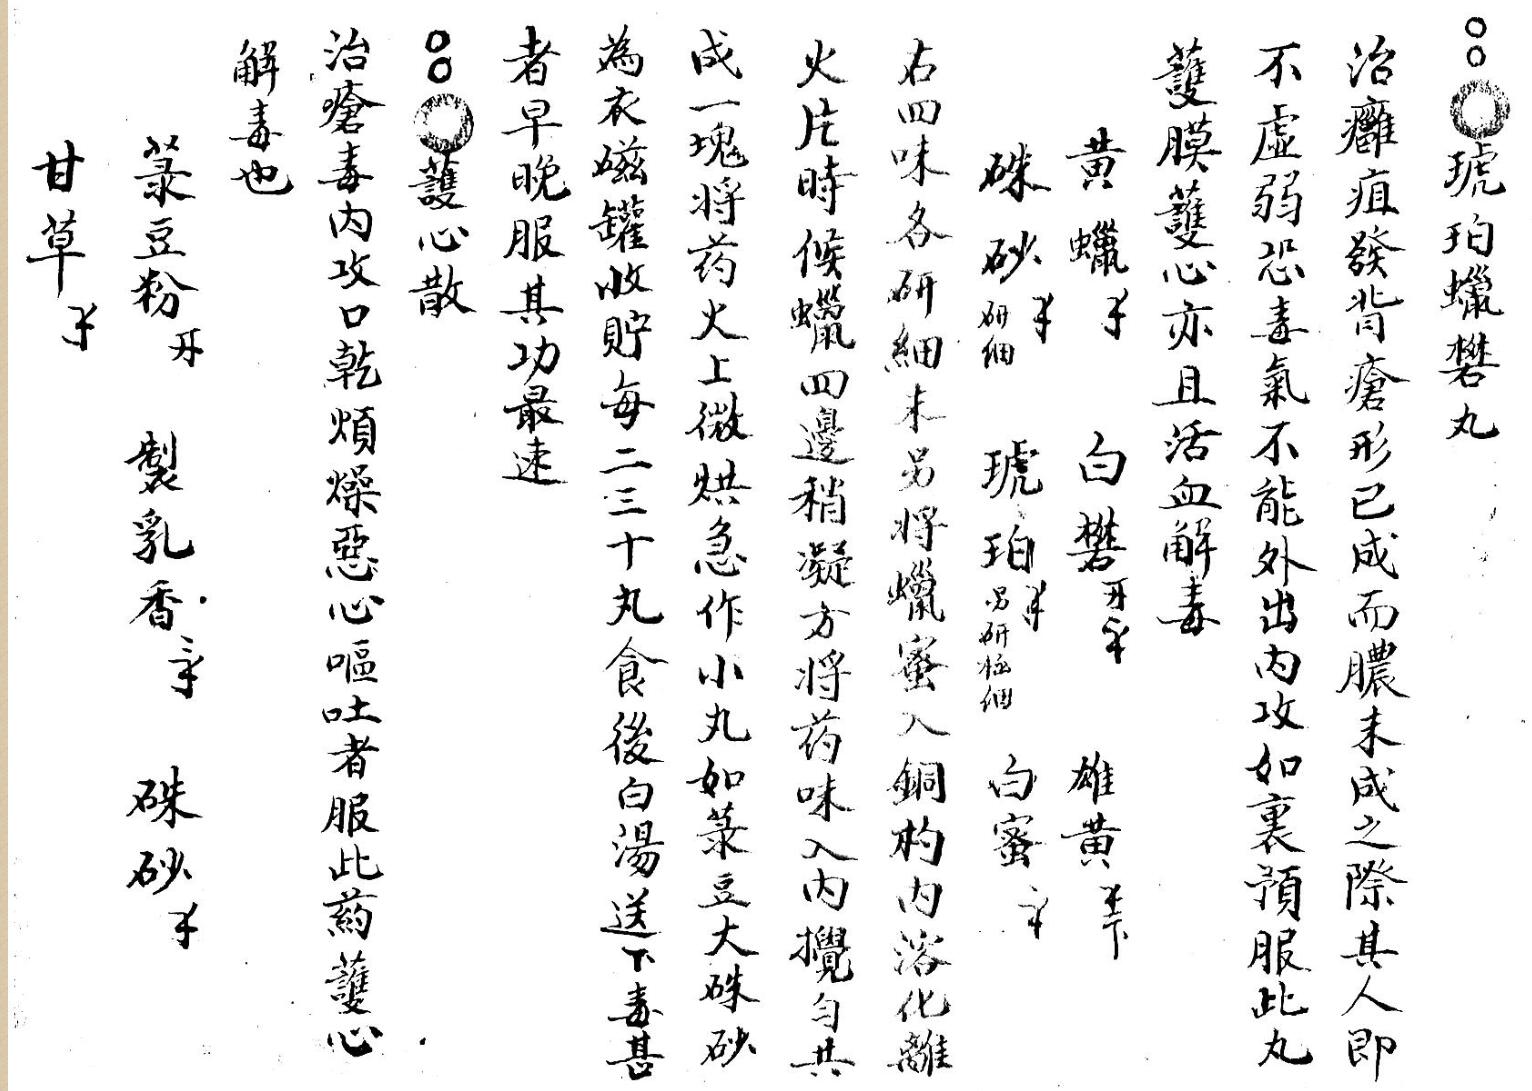 琥珀蠟礬丸
治癰疽發背瘡形已成而膿未成之際其人即
不虛弱恐毒氣不能外出内攻如裏預服此丸
護膜護心亦且活血解毒
黃蠟 白礬 雄黃
硃砂研細 琥珀另研極細 白蜜
右四味各研細末另将蠟蜜入銅杓内溶化離
火片時候蠟四邊稍凝方将药味入内攪勻共
成一塊将药火上微烘急作小丸如菉豆大硃砂
為衣磁罐收貯每二三十丸食後白湯送下毒甚
者早晚服其功最速
護心散
治瘡毒内攻口乾煩燥惡心嘔吐者服此药護心
解毒也
菉豆粉 製乳香 硃砂
甘草